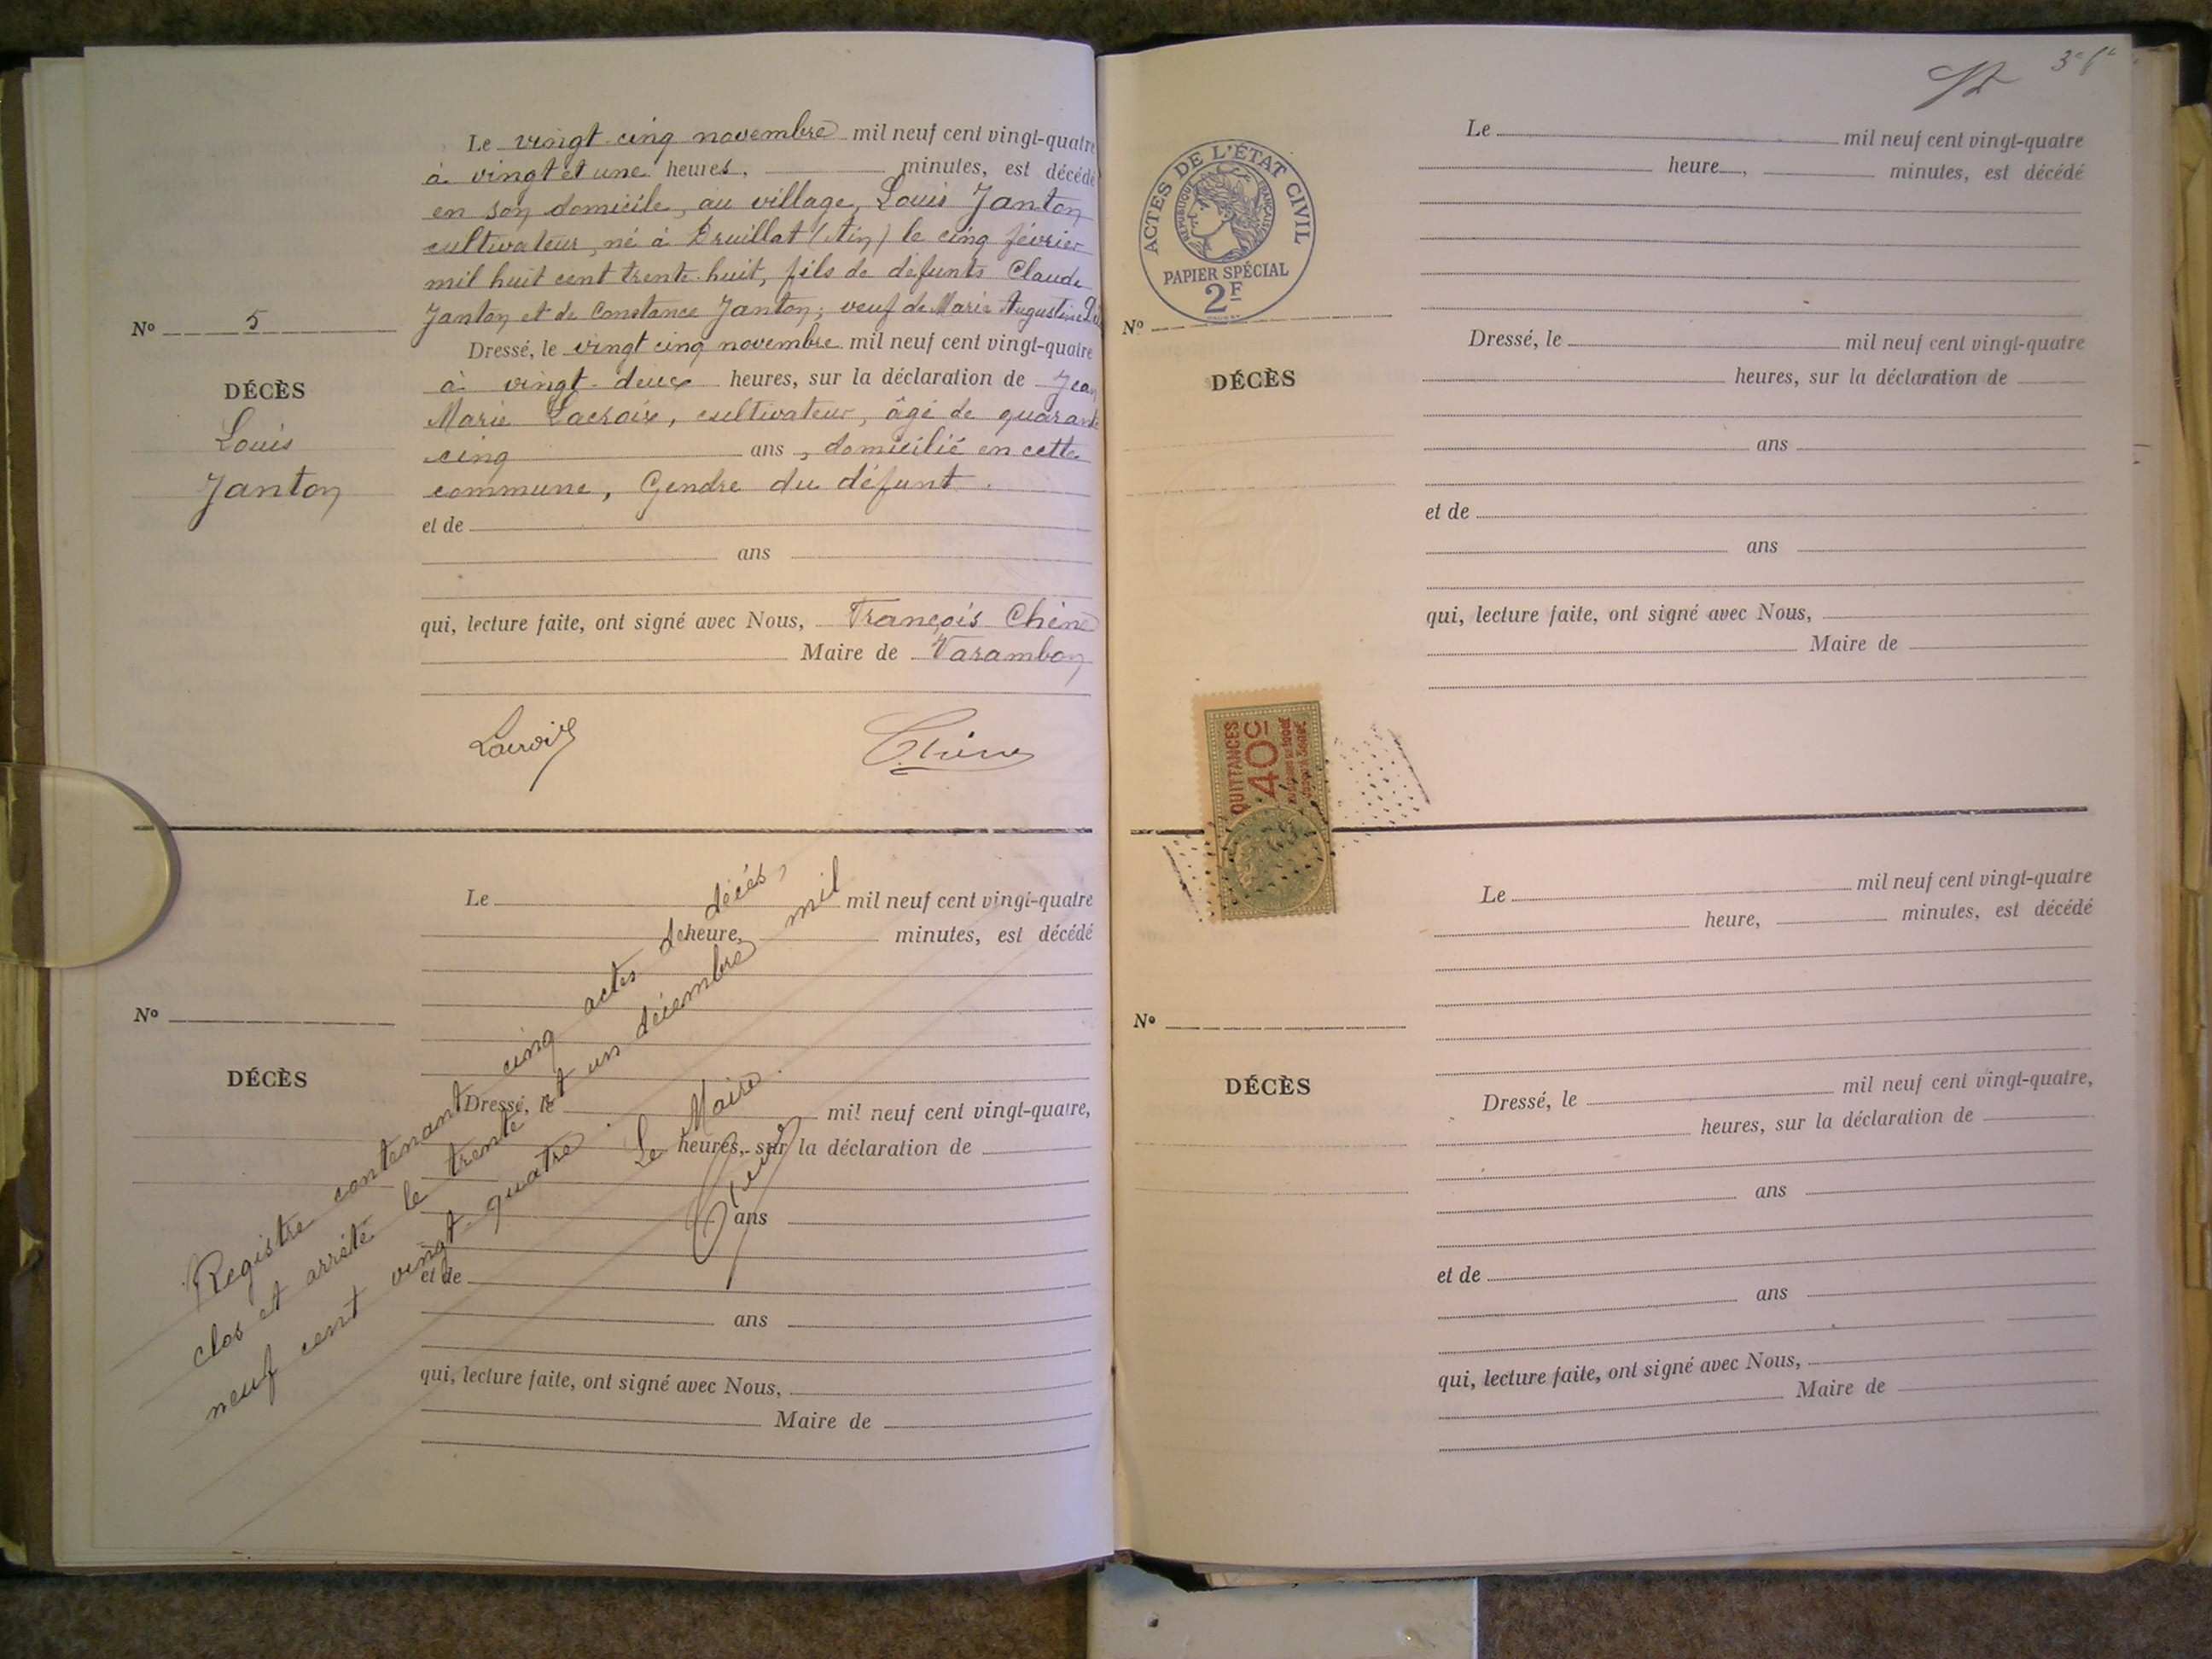 Le vingt cinq novembre mil neuf cent vingt-quatre
à vingt et une heures, minutes, est décédé
en son domicile, au village, Louis Janton
cultivateur, né à Druillat (Ain) le cinq février
mil huit cent trente-huit, fils de défunts Claude
Janton et de Constance Janton; veuf de Marie Augustine
Nº 5
Dressé, le vingt cinq novembre mil neuf cent vingt-quatre
à vingt-deux heures, sur la déclaration de Jean
DÉCÈS
Louis
Janton
Marie Lacroix, cultivateur, âgé de quarante
cinq ans, domicilié en cette
commune, Gendre du défunt.
et de
ans
qui, lecture faite, ont signé avec Nous, François Chêne
Maire de Varambon
Lacroix
Chêne
Le mil neuf cent vingt-quatre
heure, minutes, est décédé
Nº
DÉCÈS
Dressé, le mil neuf cent vingt-quatre,
heures, sur la déclaration de
ans
et de
ans
qui, lecture faite, ont signé avec Nous,
Maire de
Registre contenant cinq actes de décés,
clos et arrêté le trente et un décembre mil
neuf cent vingt-quatre.
Le Maire.
Chêne
ACTES DE L'ÉTAT CIVIL
RÉPUBLIQUE FRANÇAISE
PAPIER SPÉCIAL
2F
Le mil neuf cent vingt-quatre
heure, minutes, est décédé
Nº
DÉCÈS
Dressé, le mil neuf cent vingt-quatre
heures, sur la déclaration de
ans
et de
ans
qui, lecture faite, ont signé avec Nous,
Maire de
QUITTANCES
40c
Le mil neuf cent vingt-quatre
heure, minutes, est décédé
Nº
DÉCÈS
Dressé, le mil neuf cent vingt-quatre,
heures, sur la déclaration de
ans
et de
ans
qui, lecture faite, ont signé avec Nous,
Maire de